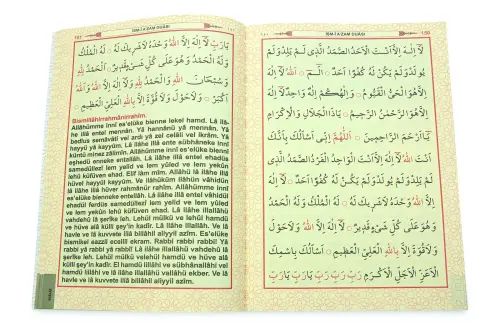 ١٥٠ İSM-İ A'ZAM DUÂSI
لَا اِلٰهَ اِلَّا اَنْتَ الْاَحَدُ الصَّمَدُ الَّذِى لَمْ يَلِدْ وَلَمْ
يُولَدْ وَلَمْ يَكُنْ لَهُ كُفُوًا اَحَدٌ ۞ الٓمٓ ۞ اَللّٰهُ لَا اِلٰهَ
اِلَّا هُوَ الْحَىُّ الْقَيُّومُ ۞ وَاِلٰهُكُمْ اِلٰهٌ وَاحِدٌ لَا اِلٰهَ
اِلَّا هُوَ الرَّحْمٰنُ الرَّحِيمُ ۞ يَا ذَا الْجَلَالِ وَالْاِكْرَامِ
يَا اَرْحَمَ الرَّاحِمِينَ ۞ اَللّٰهُمَّ اِنِّى اَسْاَلُكَ بِاَنَّكَ
اَنْتَ اللّٰهُ لَا اِلٰهَ اِلَّا اَنْتَ الْوَاحِدُ الْفَرْدُ الصَّمَدُ الَّذِى
لَمْ يَلِدْ وَلَمْ يُولَدْ وَلَمْ يَكُنْ لَهُ كُفُوًا اَحَدٌ ۞ لَا اِلٰهَ
اِلَّا اللّٰهُ وَحْدَهُ لَا شَرِيكَ لَهُ لَهُ الْمُلْكُ وَلَهُ الْحَمْدُ
وَهُوَ عَلٰى كُلِّ شَىْءٍ قَدِيرٌ ۞ لَا اِلٰهَ اِلَّا اللّٰهُ وَلَا حَوْلَ
وَلَا قُوَّةَ اِلَّا بِاللّٰهِ الْعَلِىِّ الْعَظِيمِ ۞ اَسْاَلُكَ بِاسْمِكَ
الْاَعَزِّ الْاَجَلِّ الْاَكْرَمِ رَبِّ رَبِّ يَارَبِّ يَارَبِّ
151 İSM-İ A'ZAM DUÂSI
يَارَبِّ لَا اِلٰهَ اِلَّا اللّٰهُ وَحْدَهُ لَا شَرِيكَ لَهُ ۞ لَهُ الْمُلْكُ
وَلَهُ الْحَمْدُ وَهُوَ عَلٰى كُلِّ شَىْءٍ قَدِيرٌ ۞ اَلْحَمْدُ لِلّٰهِ
وَسُبْحَانَ اللّٰهِ وَلَا اِلٰهَ اِلَّا اللّٰهُ وَاللّٰهُ
اَكْبَرُ ۞ وَلَا حَوْلَ وَلَا قُوَّةَ اِلَّا بِاللّٰهِ الْعَلِىِّ الْعَظِيمِ
Bismillâhirrahmânirrahîm.
Allâhümme innî es'elüke bienne lekel hamd. Lâ ilâ-
he illâ entel mennân. Yâ hannânü yâ mennân. Yâ
bedîus semâvâti vel ardı yâ zel celâli vel ikrâm. Yâ
hayyü yâ kayyûm. Lâ ilâhe illâ ente sübhâneke innî
küntü minez zâlimîn. Allâhümme innî es'elüke bienni
eşhedü enneke entallâh. Lâ ilâhe illâ entel ehadüs
samedüllezî lem yelid ve lem yûled ve lem yekün
lehû küfüven ehad. Elif lâm mîm. Allâhü lâ ilâhe illâ
hüvel hayyül kayyûm. Ve ilâhüküm ilâhün vâhidün
lâ ilâhe illâ hüver rahmânür rahîm. Allâhümme innî
es'elüke bienneke entellâh. Lâ ilâhe illâ entel vâhidül
ehadül ferdüs samedüllezî lem yelid ve lem yûled ve
lem yekün lehû küfüven ehad. Lâ ilâhe illallâhü
vahdehû lâ şerîke leh. Lehül mülkü ve lehül hamdü
ve hüve alâ külli şey'in kadîr. Lâ ilâhe illallâh. Ve lâ
havle ve lâ kuvvete illâ billâhil aliyyil azîm. Es'elüke
bismikel eazzil ecellil ekram. Rabbi rabbi yâ rabbi! Yâ
rabbi yâ rabbi yâ rabbi! Lâ ilâhe illallâhü vahdehû lâ
şerîke leh. Lehül mülkü velehül hamdü ve hüve alâ
külli şey'in kadîr. El hamdü lillâhi ve sübhânallâhi vel
hamdü lillâhi ve lâ ilâhe illallâhü vallâhü ekber. Ve lâ
havle ve lâ kuvvete illâ billâhil aliyyil azîm.